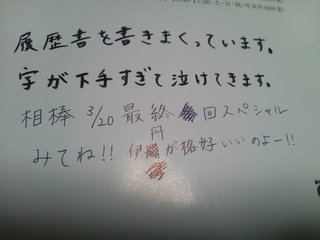 履歴書を書きまくっています。
字が下手すぎて泣けてきます。
相棒 3/20 最終回スペシャル
みてね!! 伊丹が格好いいのよー!!